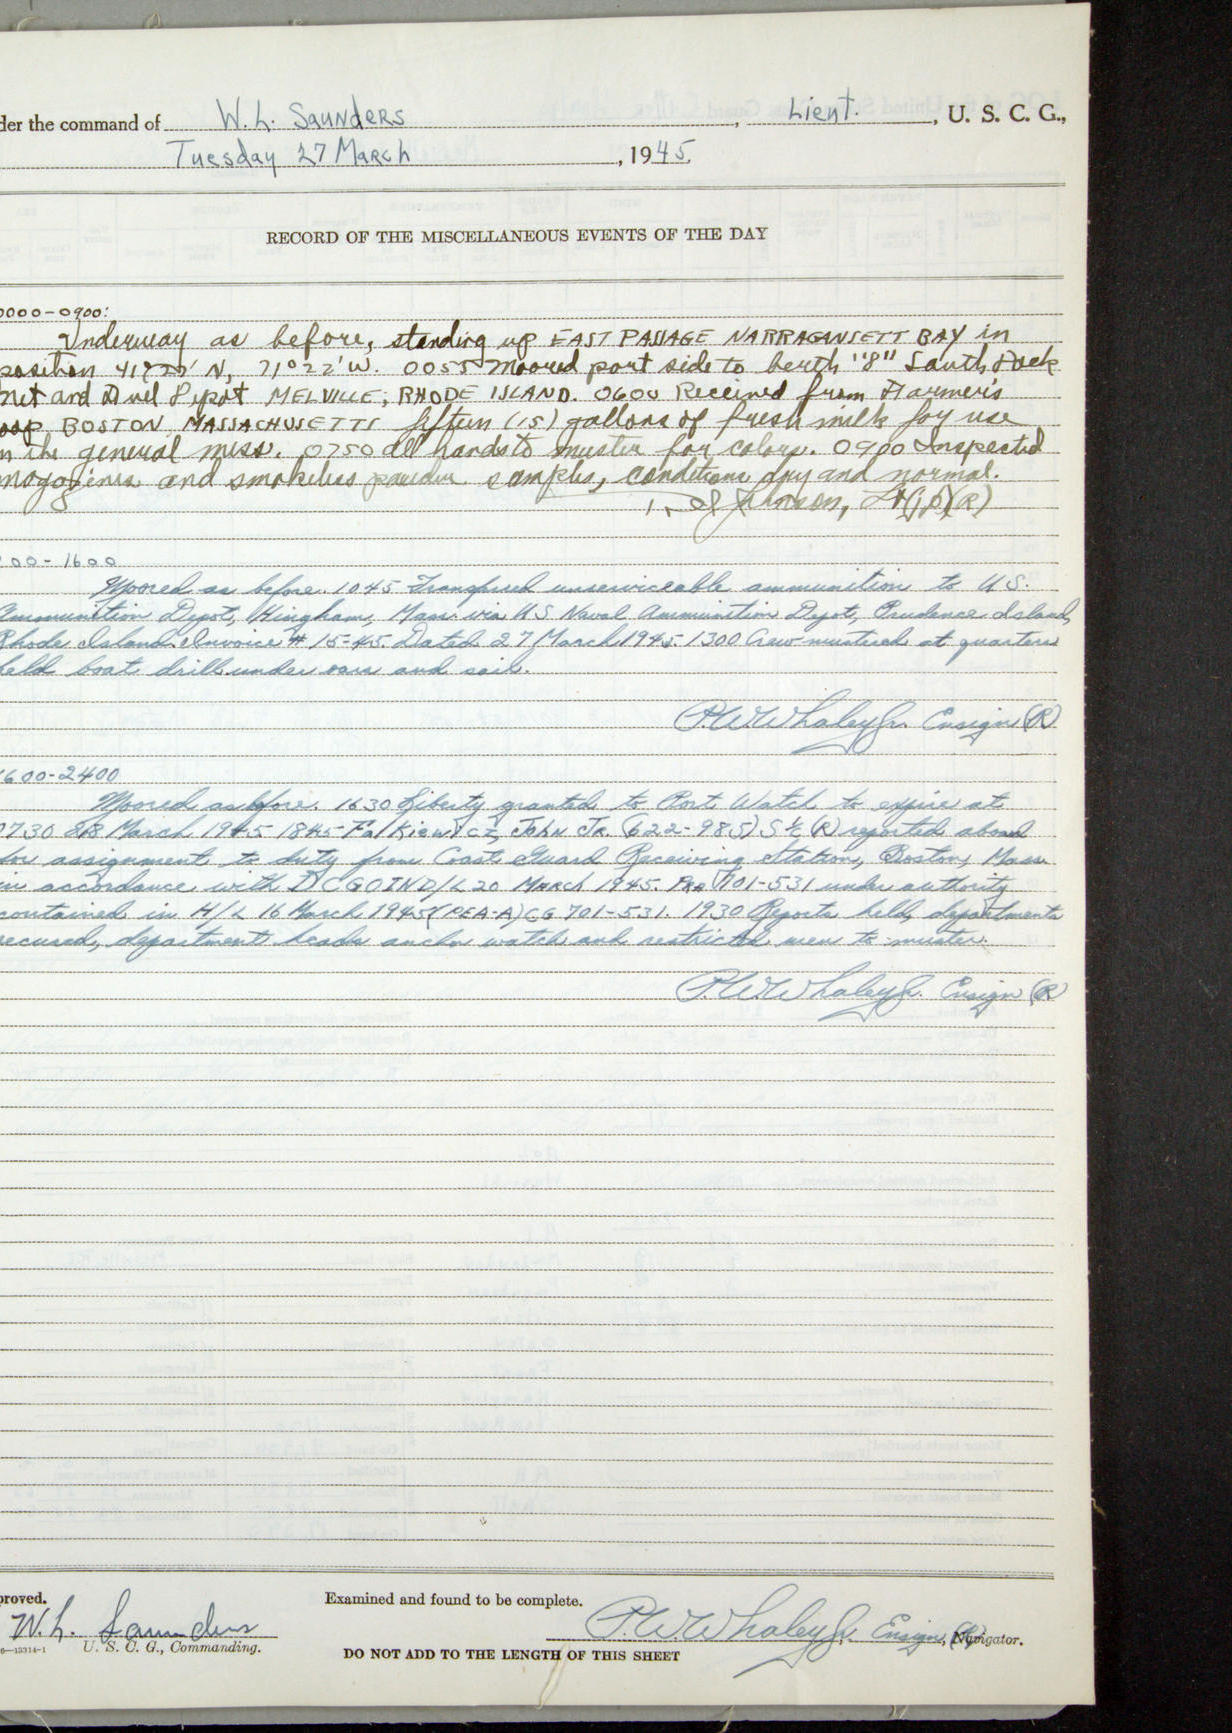 der the command of W. L. Saunders, Lieut., U. S. C. G.,
Tuesday 27 March, 1945.
RECORD OF THE MISCELLANEOUS EVENTS OF THE DAY
0000-0900:
Underway as before, standing up EAST PASSAGE NARRAGANSETT BAY in
position N, 71°22'W. 0055 Moored port side to berth "8" South Dock
Net and Fuel Depot MELVILLE, RHODE ISLAND. 0600 Received from Farmer's
oop, BOSTON, MASSACHUSETTS fifteen (15) gallons of fresh milk for use
n the general mess. 0750 all hands to muster for colors. 0900 Inspected
magazines and smokeless powder samples, conditions dry and normal.
Lt(jg)(R)
00-1600
Moored as before. 1045 Transferred unserviceable ammunition to U.S.
Ammunition Depot, Hingham, Mass. via US Naval Ammunition Depot, Prudence Island,
Rhode Island. Invoice # 15-45. Dated 27 March 1945. 1300 Crew mustered at quarters
held boat drill under oars and sail.
P.W. Whaley Jr. Ensign (R)
1600-2400
Moored as before. 1630 Liberty granted to Port Watch to expire at
0730 28 March 1945 1845 Falkiewicz, John Jr. (622-985) S1/c (R) reported aboard
for assignment to duty from Coast Guard Receiving Station, Boston, Mass.
in accordance with DCGO1ND/L 20 March 1945. 701-531 under authority
contained in H/L 16 March 1945 (PEA-A) CG 701-531. 1930 Reports held, departments
secured, department heads anchor watch and restricted men to muster.
P.W. Whaley Jr. Ensign (R)
proved.
Examined and found to be complete.
W. L. Saunders
U. S. C. G., Commanding.
P.W. Whaley Jr. Ensign (R), Navigator.
6—13314-1
DO NOT ADD TO THE LENGTH OF THIS SHEET